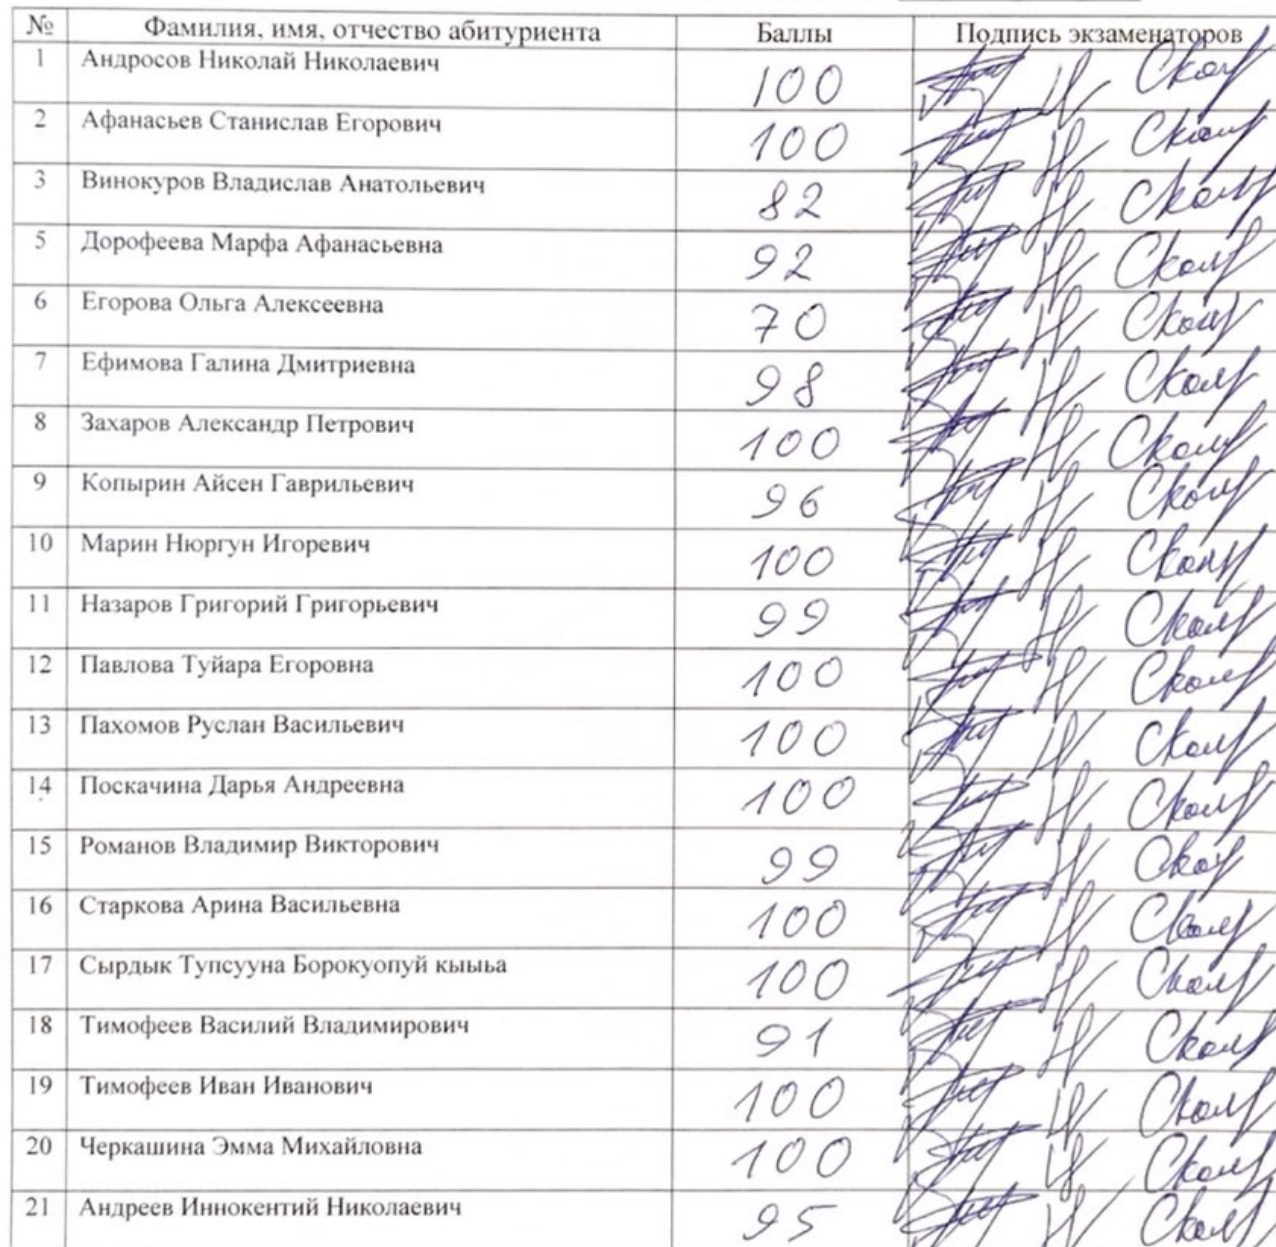 № Фамилия, имя, отчество абитуриента Баллы Подпись экзаменаторов
1 Андросов Николай Николаевич 100
2 Афанасьев Станислав Егорович 100
3 Винокуров Владислав Анатольевич 82
5 Дорофеева Марфа Афанасьевна 92
6 Егорова Ольга Алексеевна 70
7 Ефимова Галина Дмитриевна 98
8 Захаров Александр Петрович 100
9 Копырин Айсен Гаврильевич 96
10 Марин Нюргун Игоревич 100
11 Назаров Григорий Григорьевич 99
12 Павлова Туйара Егоровна 100
13 Пахомов Руслан Васильевич 100
14 Поскачина Дарья Андреевна 100
15 Романов Владимир Викторович 99
16 Старкова Арина Васильевна 100
17 Сырдык Тупсууна Борокуопуй кыыьа 100
18 Тимофеев Василий Владимирович 91
19 Тимофеев Иван Иванович 100
20 Черкашина Эмма Михайловна 100
21 Андреев Иннокентий Николаевич 95